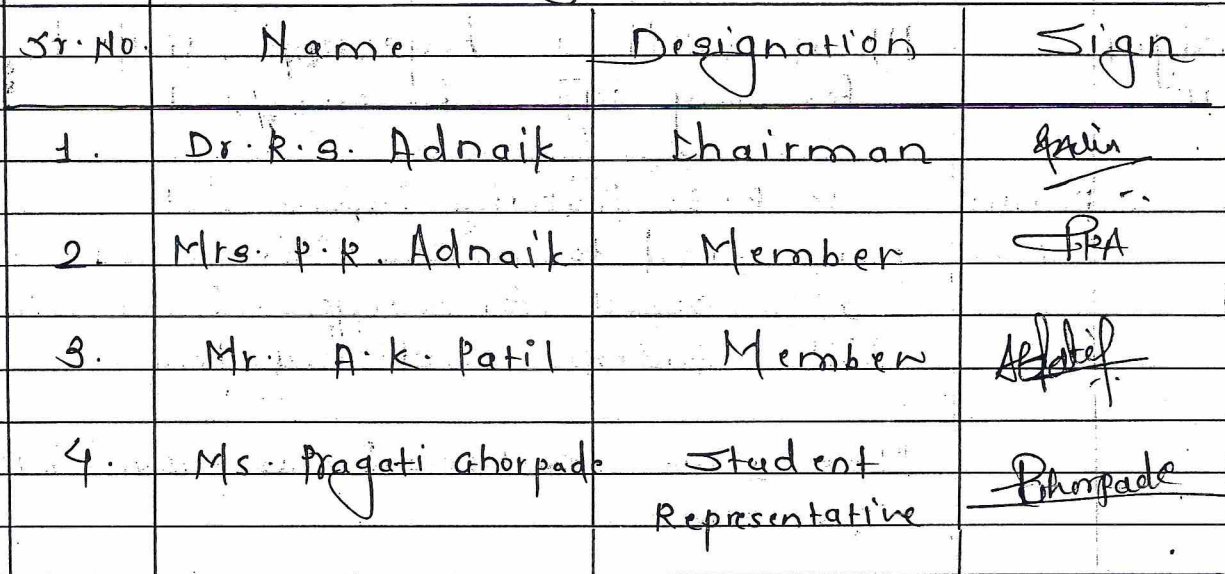 Sr. No. Name Designation Sign
1. Dr. R. S. Adnaik Chairman
2. Mrs. P. R. Adnaik Member PRA
3. Mr. A. K. Patil Member AKPatil
4. Ms. Pragati Ghorpade Student PGhorpade
Representative